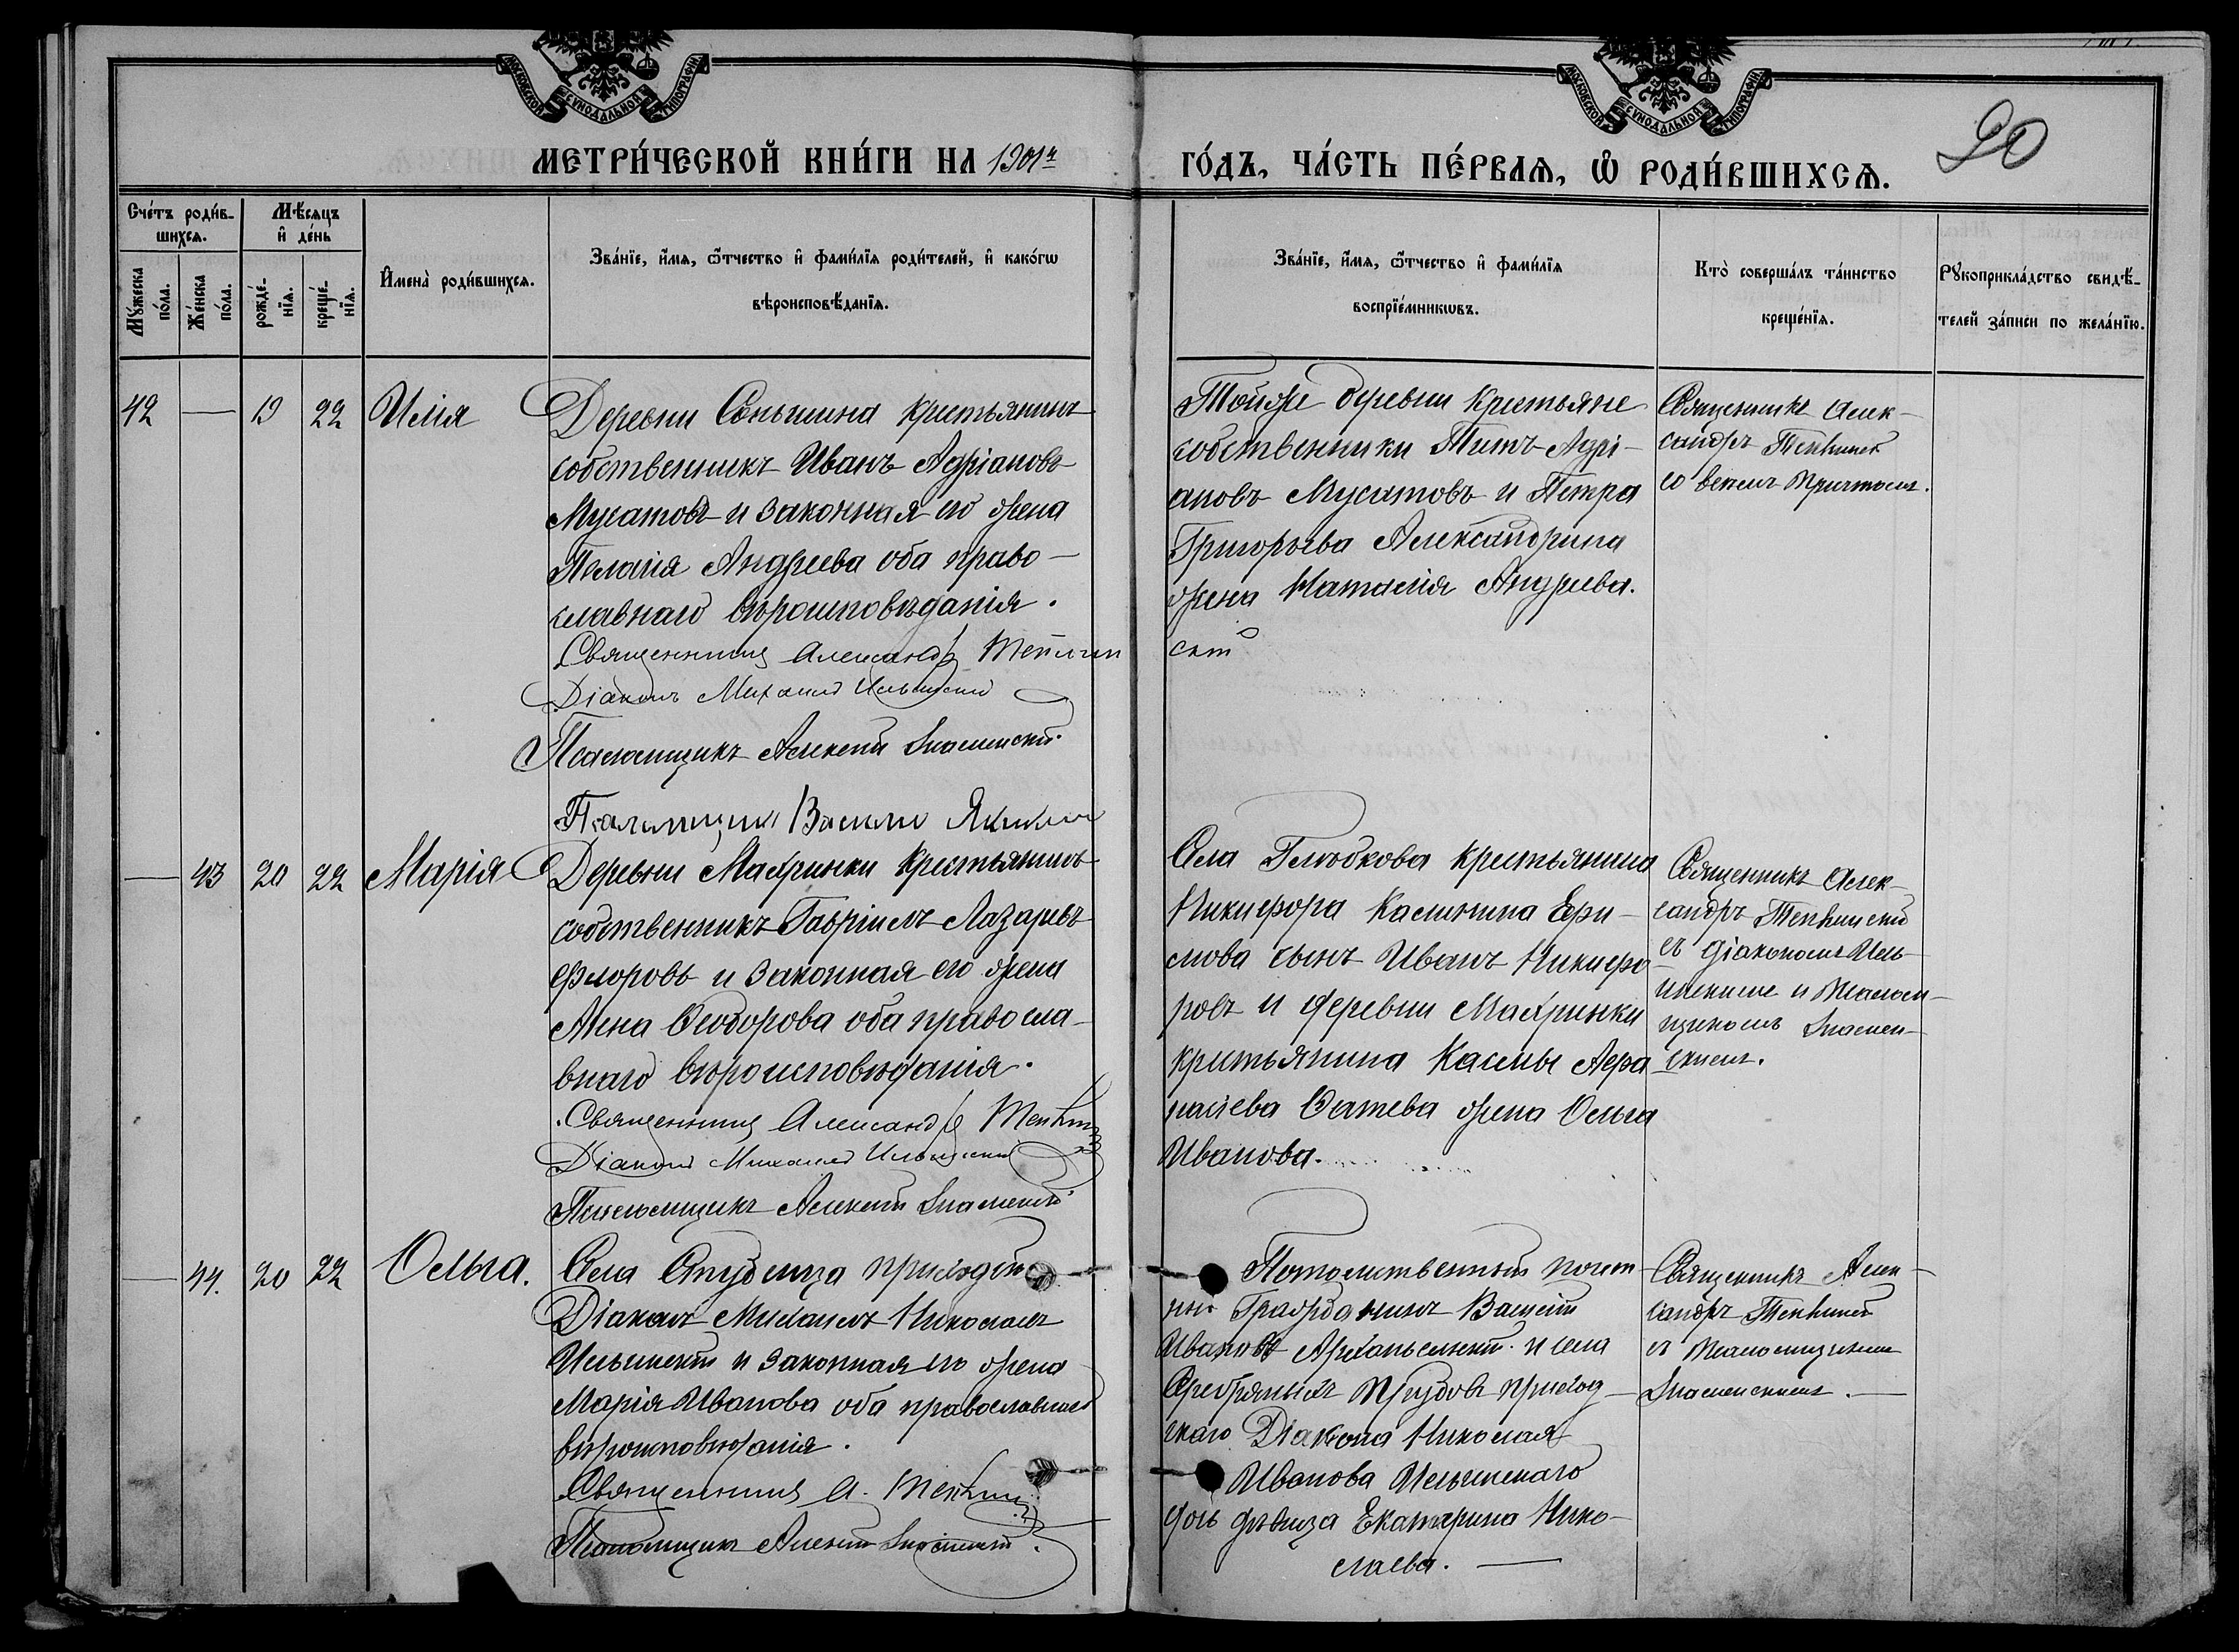 МОСКОВСКОЙ СѴНОДАЛЬНОЙ ТИПОГРАФІИ
МОСКОВСКОЙ СѴНОДАЛЬНОЙ ТИПОГРАФІИ
20
МЕТРИ́ЧЕСКОЙ КНИ́ГИ НА 1901й
ГО́ДЪ, ЧА́СТЬ ПЕ́РВАѦ, Ѡ РОДИ́ВШИХСѦ.
Сче́тъ роди́в-
шихсѧ.
Мꙋ́жеска
по́ла.
Же́нска
по́ла.
Мѣ́сѧцъ
и де́нь
рожде́-
нїѧ.
креще́-
нїѧ.
Имена̀ роди́вшихсѧ.
Зва́нїе, и́мѧ, ѻ́тчество и фами́лїѧ роди́телей, и како́гѡ
вѣроисповѣ́данїѧ.
Зва́нїе, и́мѧ, ѻ́тчество и фами́лїѧ
воспрїе́мникѡвъ.
Кто̀ соверша́лъ та́инство
креще́нїѧ.
Рꙋкоприкла́дство свидѣ́-
телей за́писи по жела́нїю.
42 — 19 22 Илія
Деревни крестьянинъ
собственникъ Иванъ Адріановъ
Мусатовъ и законная его жена
Пелагія Андреева оба право-
славнаго вѣроисповѣданія.
Священникъ Александръ
Діаконъ Михаилъ Ильинскій
Псаломщикъ Алексѣй Знаменскій
Псаломщикъ Василій
Тойже деревни крестьяне
собственники Титъ Адрі-
ановъ Мусатовъ и Петра
Григорьева Александрина
жена Наталія Андреева.
Священникъ Алек-
сандръ
со всемъ причтомъ.
— 43 20 22 Марія
Деревни Махринки крестьянинъ
собственникъ Гавріилъ Лазаревъ
Флоровъ и законная его жена
Анна Ѳеодорова оба правосла-
внаго вѣроисповѣданія.
Священникъ Александръ
Діаконъ Михаилъ Ильинскій
Псаломщикъ Алексѣй Знаменскій
Села Глѣбкова крестьянина
Никифора Калинина Ери-
мова сынъ Иванъ Никифо-
ровъ и деревни Махринки
крестьянина Касмы Афа-
насьева жена Ольга
Иванова.
Священникъ Алек-
сандръ
съ діакономъ Иль-
инскимъ и псалом-
щикомъ Знамен-
скимъ.
— 44. 20 22 Ольга.
Села Студенца приходскій
Діаконъ Михаилъ Николаевъ
Ильинскій и законная его жена
Марія Иванова оба православнаго
вѣроисповѣданія.
Священникъ А.
Псаломщикъ Алексѣй Знаменскій.
Потомственный почет-
ный Гражданинъ Василій
Ивановъ Архангельскій и села
Серебряныхъ Прудовъ приход-
скаго Діакона Николая
Иванова Ильинскаго
дочь дѣвица Екатерина Нико-
лаева.
Священникъ Алек-
сандръ
съ псаломщикомъ
Знаменскимъ.